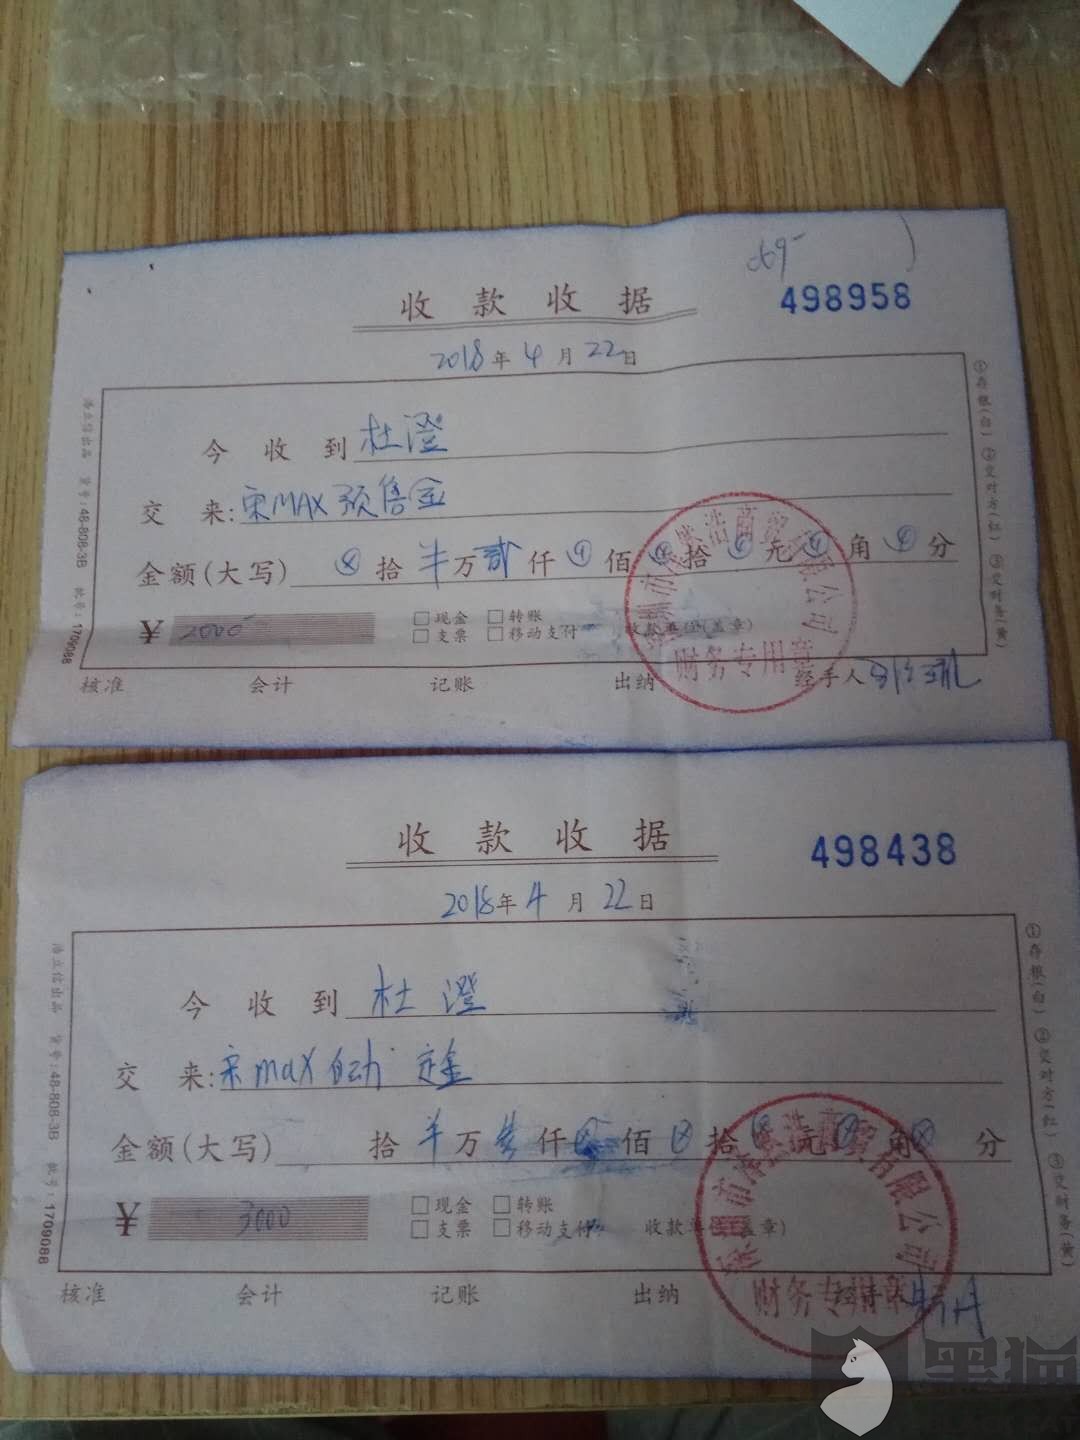 498958
收款收据
2018年4月22日
今收到杜澄
交来:宋MAX预售金
金额(大写) 拾 万贰仟 佰 拾 元 角 分
¥ 2000
现金 转账
支票 移动支付
收款单位(盖章)
财务专用章
核准 会计 记账 出纳 经手人
①存根(白) ②交对方(红) ③交财务(黄)
货号:48-808-3B 批号:1709088
498438
收款收据
2018年4月22日
今收到杜澄
交来:宋max自动 定金
金额(大写) 拾 万 仟 佰 拾 元 角 分
¥ 3000
现金 转账
支票 移动支付
收款单位(盖章)
财务专用章
核准 会计 记账 出纳 经手人
①存根(白) ②交对方(红) ③交财务(黄)
货号:48-808-3B 批号:1709088
黑猫